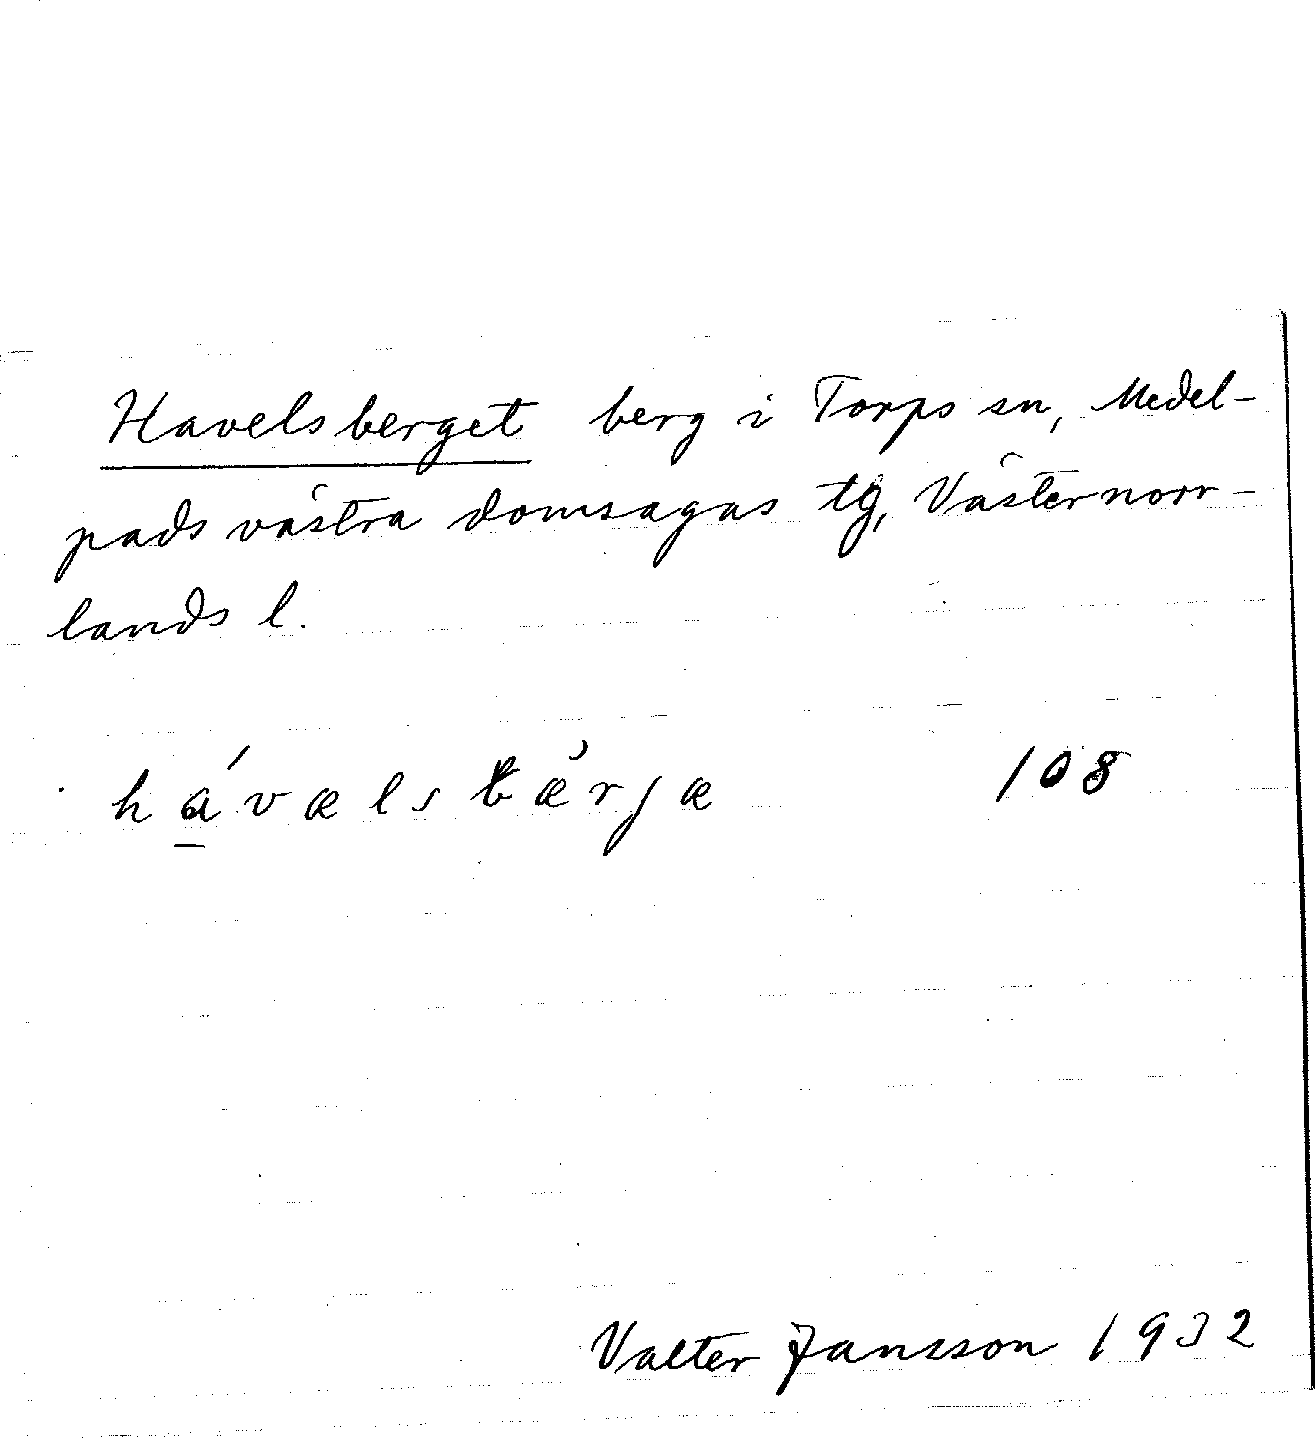 Havelsberget berg i Torps sn, Medel-
pads västra domsagas tg, Västernorr-
lands l.
hávælsbærjæ 108
Valter Jansson 1932